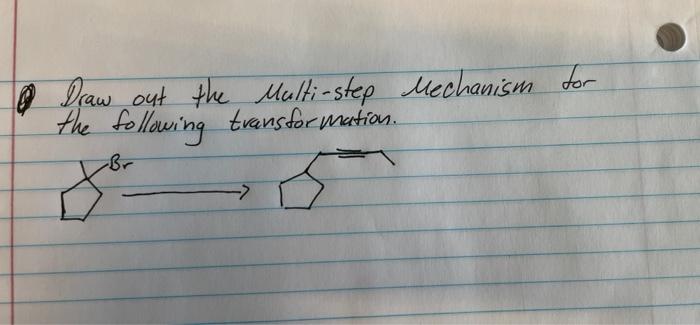 Draw out the Multi-step Mechanism for
the following transformation.
Br